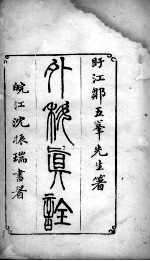 盱江鄒五峯先生著
外科真詮
皖江沈振瑞書署